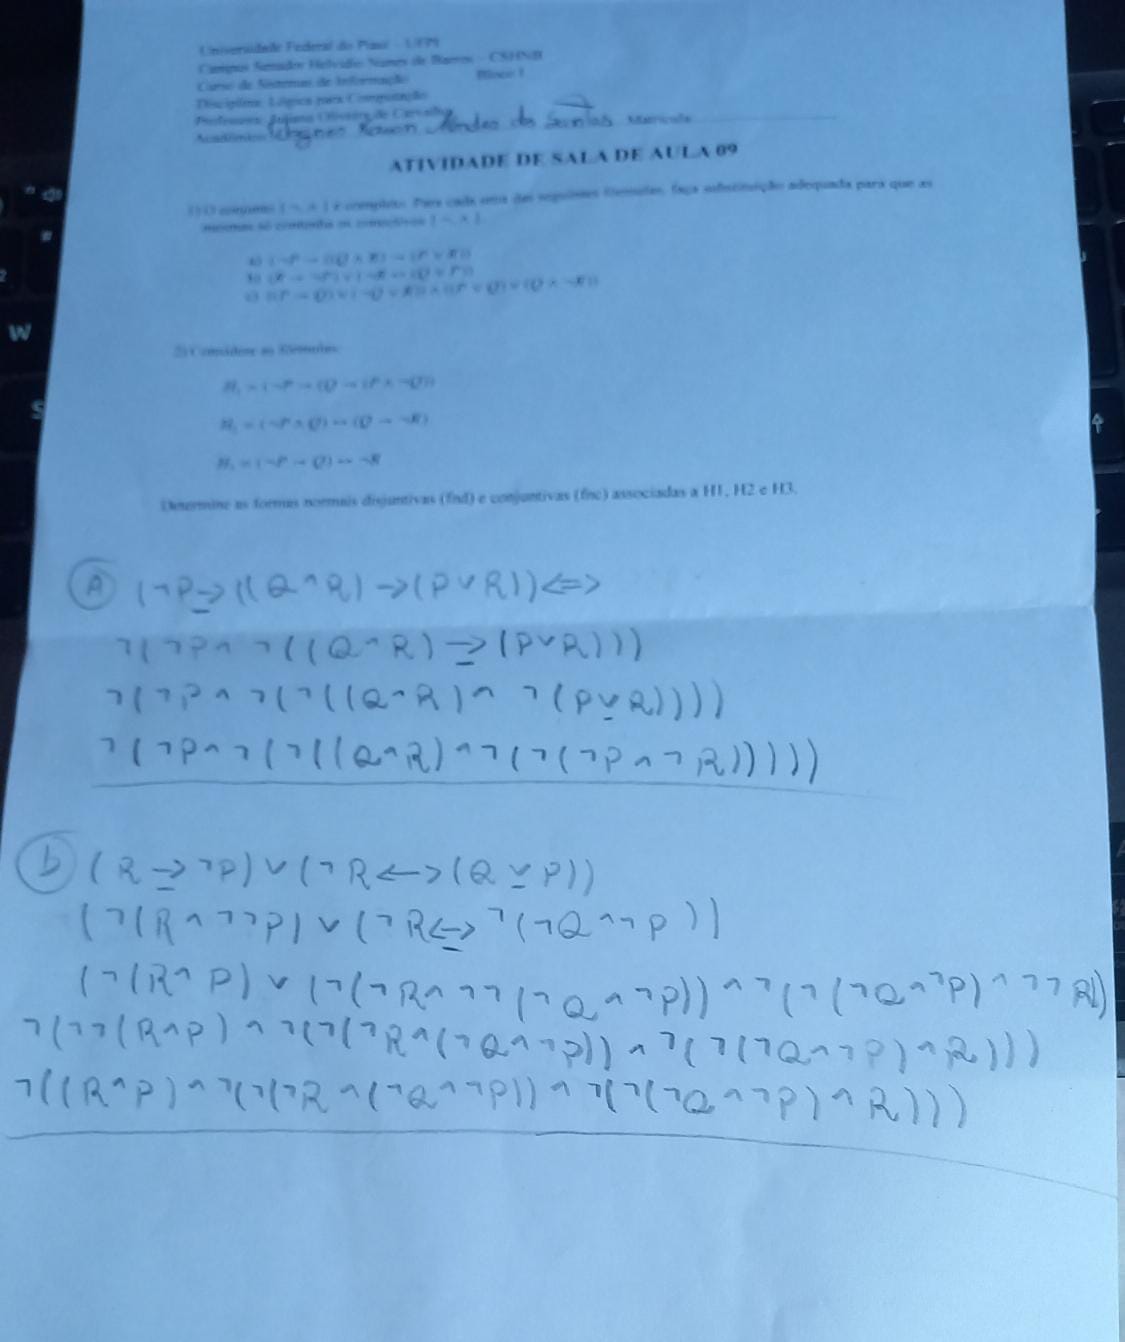 Universidade Federal do Piauí – UFPI
Campus Senador Helvídio Nunes de Barros – CSHNB
Curso de Sistemas de Informação Bloco I
Disciplina: Lógica para Computação
Professora: Juliana Oliveira de Carvalho
Acadêmico: Ramon Mendes dos Santos Matrícula
ATIVIDADE DE SALA DE AULA 09
1) O conjunto { ¬, ∧ } é completo. Para cada uma das seguintes fórmulas, faça substituição adequada para que as
mesmas só contenha os conectivos { ¬, ∧ }
a) (¬P → ((Q ∧ R) → (P ∨ R))
b) (R → ¬P) ∨ (¬R ↔ (Q ∨ P))
c) ((P → Q) ∨ (¬Q ∨ R)) ∧ ((P ∨ Q) ∨ (Q ∧ ¬R))
2) Considere as fórmulas:
H₁ = (¬P → (Q → (P ∧ ¬Q))
H₂ = (¬P ∧ Q) ↔ (Q → ¬R)
H₃ = (¬P → Q) ↔ ¬R
Determine as formas normais disjuntivas (fnd) e conjuntivas (fnc) associadas a H1, H2 e H3.
A (¬P → ((Q ^ R) → (P ∨ R)) <=>
¬(¬P ^ ¬(((Q ^ R) → (P ∨ R)))
¬(¬P ^ ¬(¬((Q ^ R) ^ ¬(P ∨ R))))
¬(¬P ^ ¬(¬((Q ^ R) ^ ¬(¬(¬P ^ ¬R)))))
b (R → ¬P) ∨ (¬R <-> (Q ∨ P))
(¬(R ^ ¬¬P) ∨ (¬R <-> ¬(¬Q ^ ¬P))
(¬(R ^ P) ∨ (¬(¬R ^ ¬¬(¬Q ^ ¬P)) ^ ¬(¬(¬Q ^ ¬P) ^ ¬¬R))
¬(¬¬(R ^ P) ^ ¬(¬(¬R ^ (¬Q ^ ¬P)) ^ ¬(¬(¬Q ^ ¬P) ^ R)))
¬((R ^ P) ^ ¬(¬(¬R ^ (¬Q ^ ¬P)) ^ ¬(¬(¬Q ^ ¬P) ^ R)))